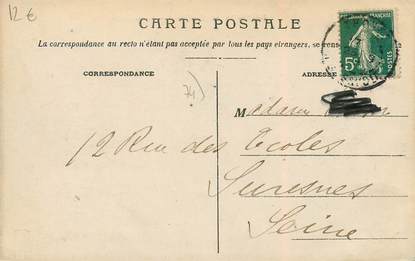 12 €
CARTE POSTALE
La correspondance au recto n'étant pas acceptée par tous les pays étrangers, se rens
CORRESPONDANCE
ADRESSE
FRANÇAISE
POSTES
5c
74)
Madame
12 Rue des Ecoles
Suresnes
Seine